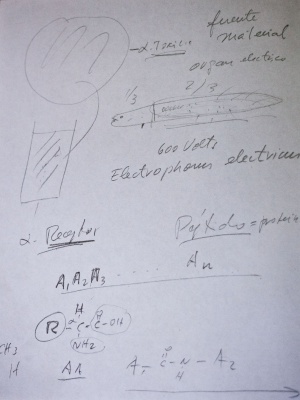 fuente
material
organo electrico
1/3 2/3
600 Volts
Electrophorus electricus
α. Receptor
Péptidos = proteina
A₁ A₂ A₃ ..... Aₙ
H O
R - C - C - OH
NH₂
CH₃
H A₁
O
A₁ - C - N - A₂
H